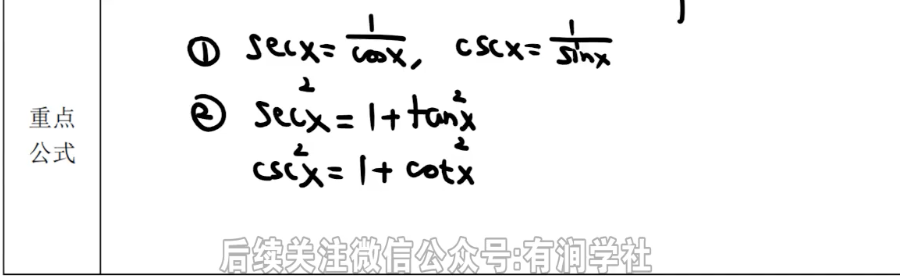 ① secx = 1/cosx, cscx = 1/sinx
② sec²x = 1 + tan²x
csc²x = 1 + cot²x
重点
公式
后续关注微信公众号:有润学社